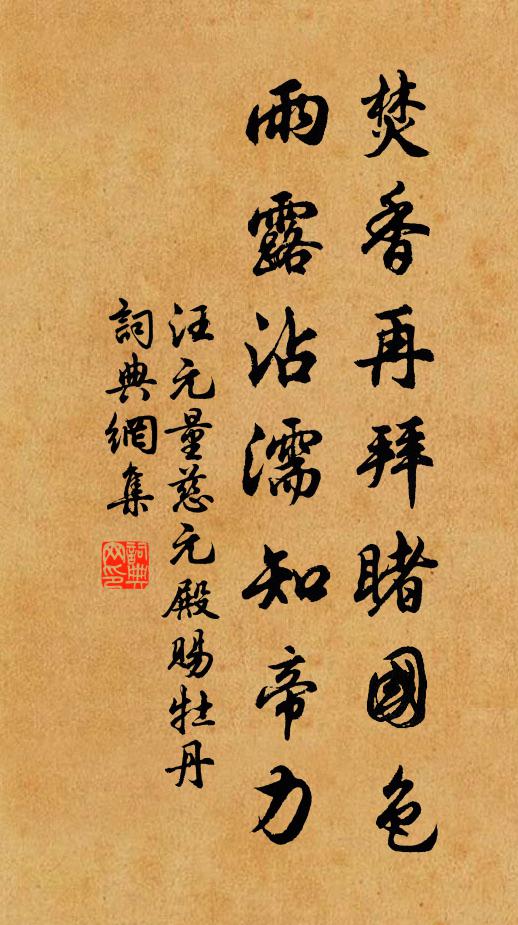 焚香再拜睹國色
雨露沾濡知帝力
汪元量慈元殿賜牡丹
詞典網集
詞典網印